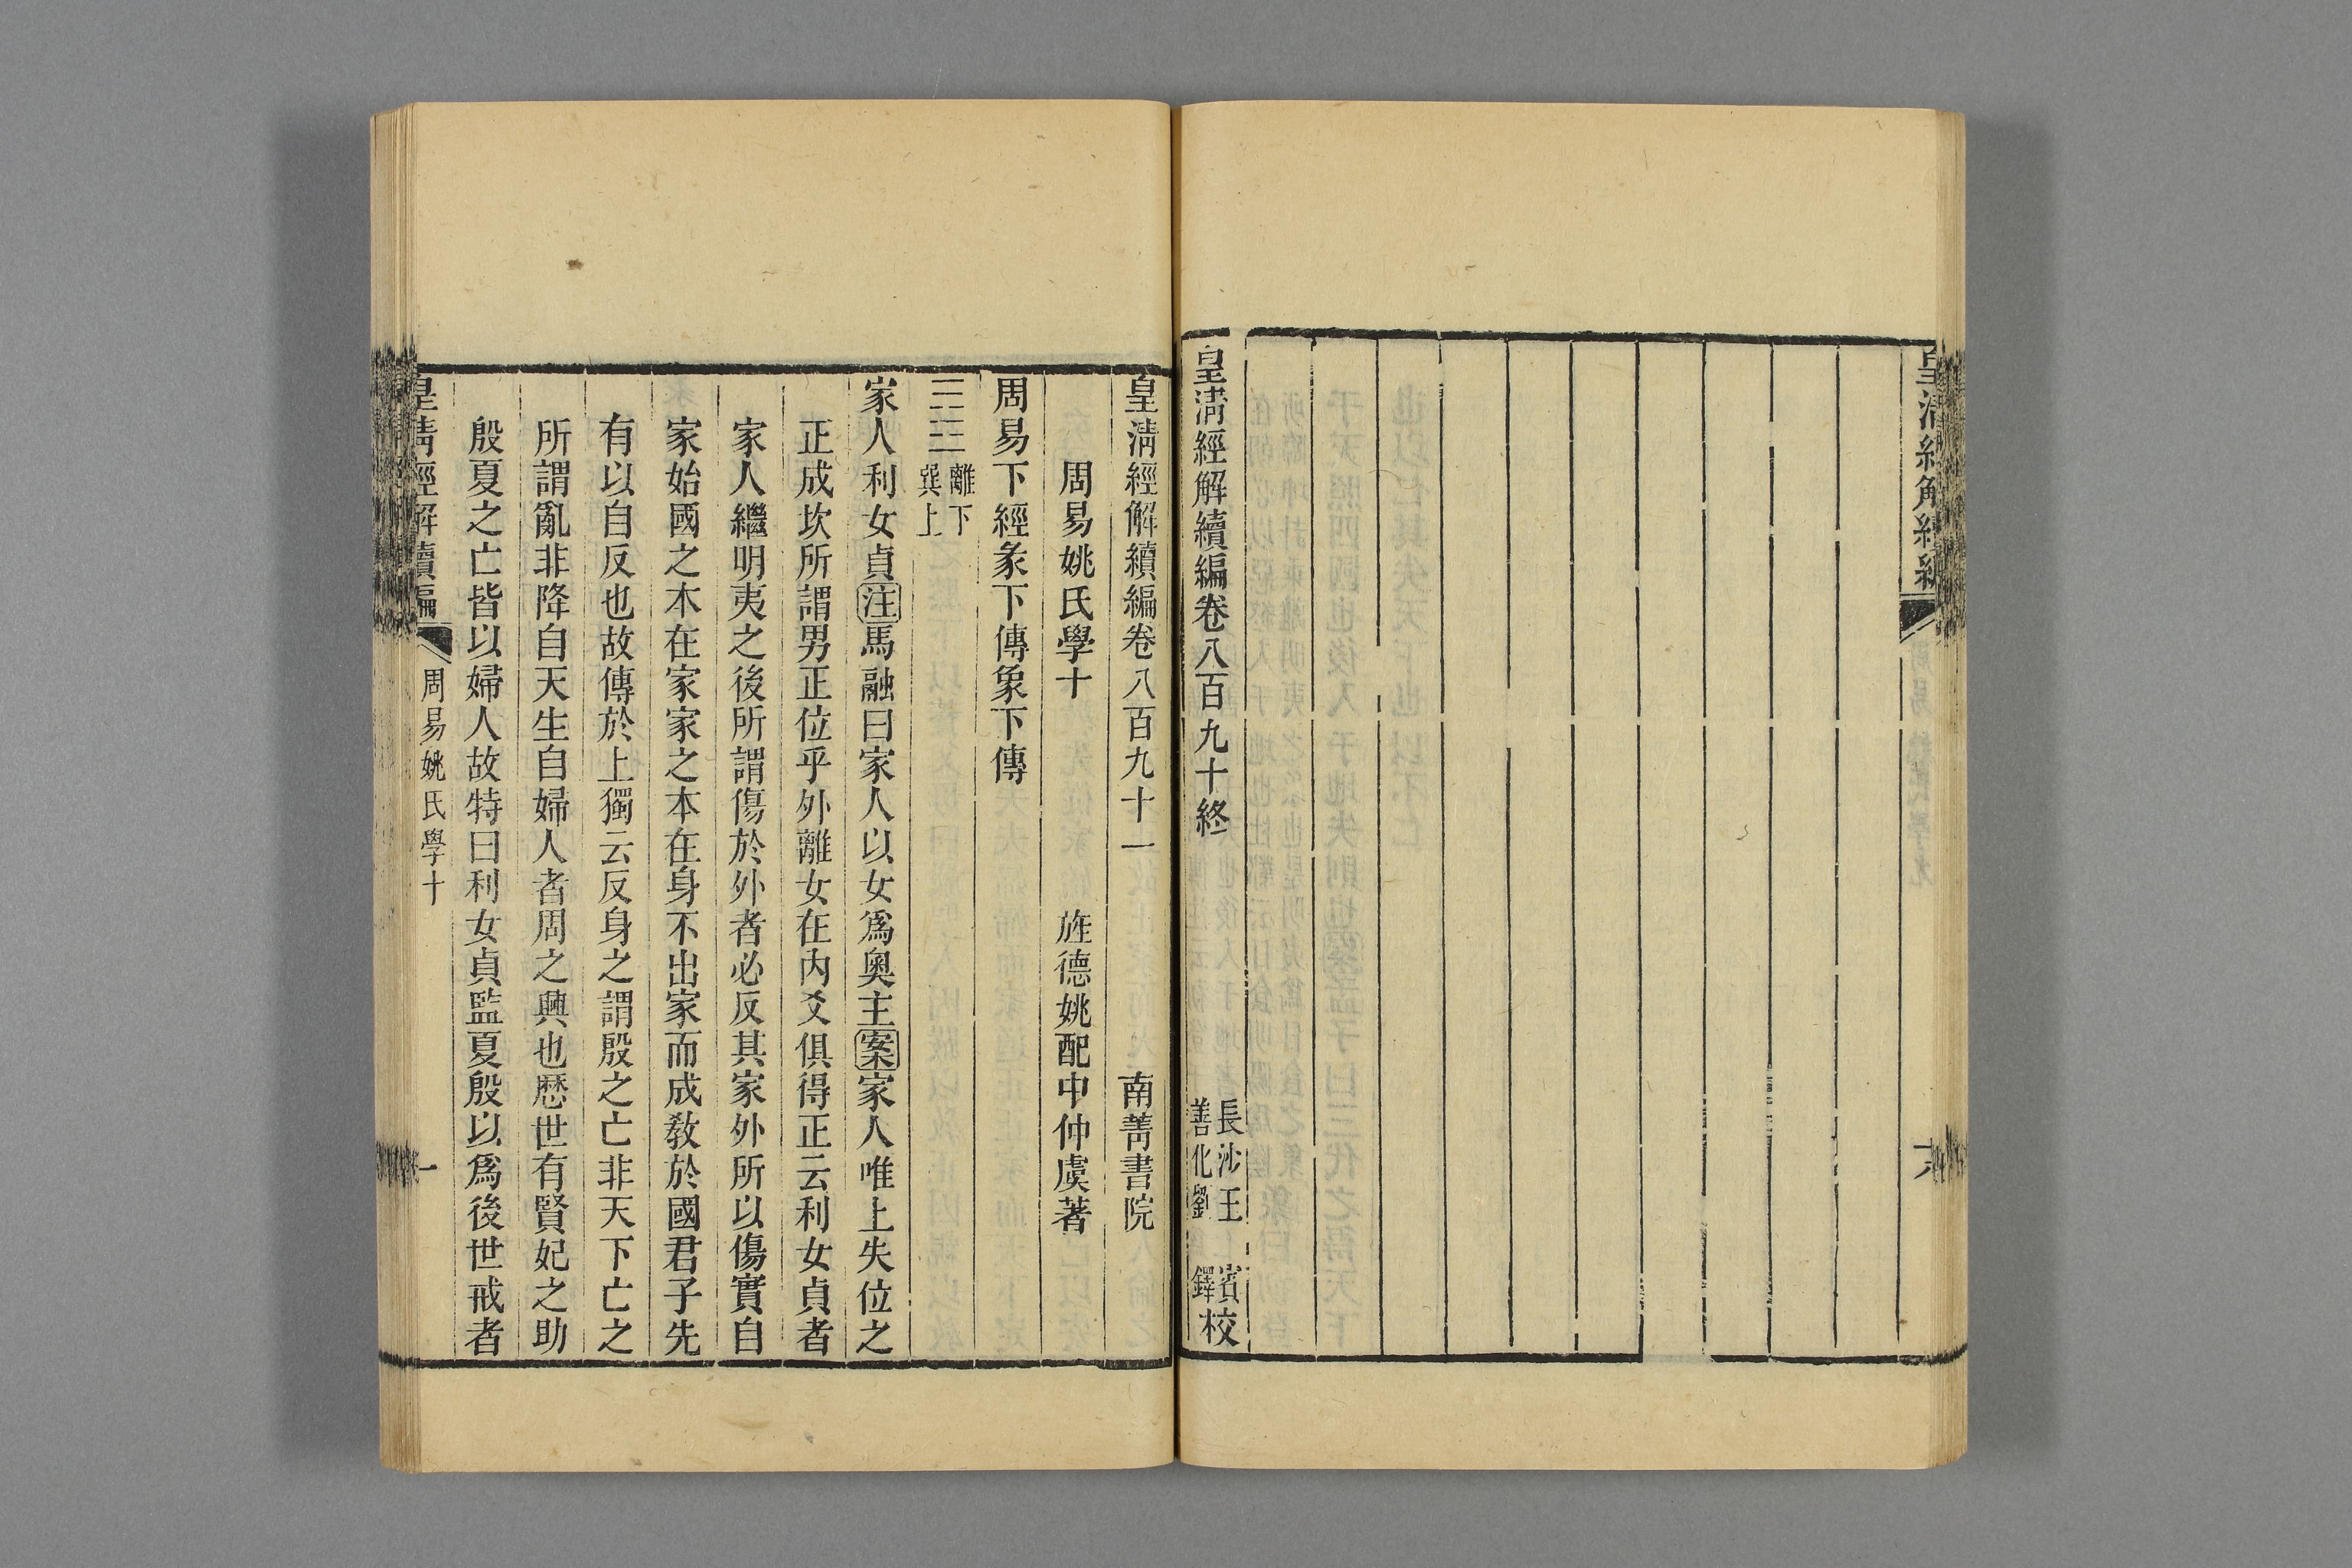 皇清經解續編
六
皇清經解續編卷八百九十終
長沙王 賓
善化劉 鐸
校
皇清經解續編卷八百九十一 南菁書院
周易姚氏學十 旌德姚配中仲虞著
周易下經彖下傳象下傳
離下
巽上
家人利女貞注馬融曰家人以女爲奧主案家人唯上失位之
正成坎所謂男正位乎外離女在內爻俱得正云利女貞者
家人繼明夷之後所謂傷於外者必反其家外所以傷實自
家始國之本在家家之本在身不出家而成敎於國君子先
有以自反也故傳於上獨云反身之謂殷之亡非天下亡之
所謂亂非降自天生自婦人者周之興也歷世有賢妃之助
殷夏之亡皆以婦人故特曰利女貞監夏殷以爲後世戒者
皇清經解續編
周易姚氏學十
一